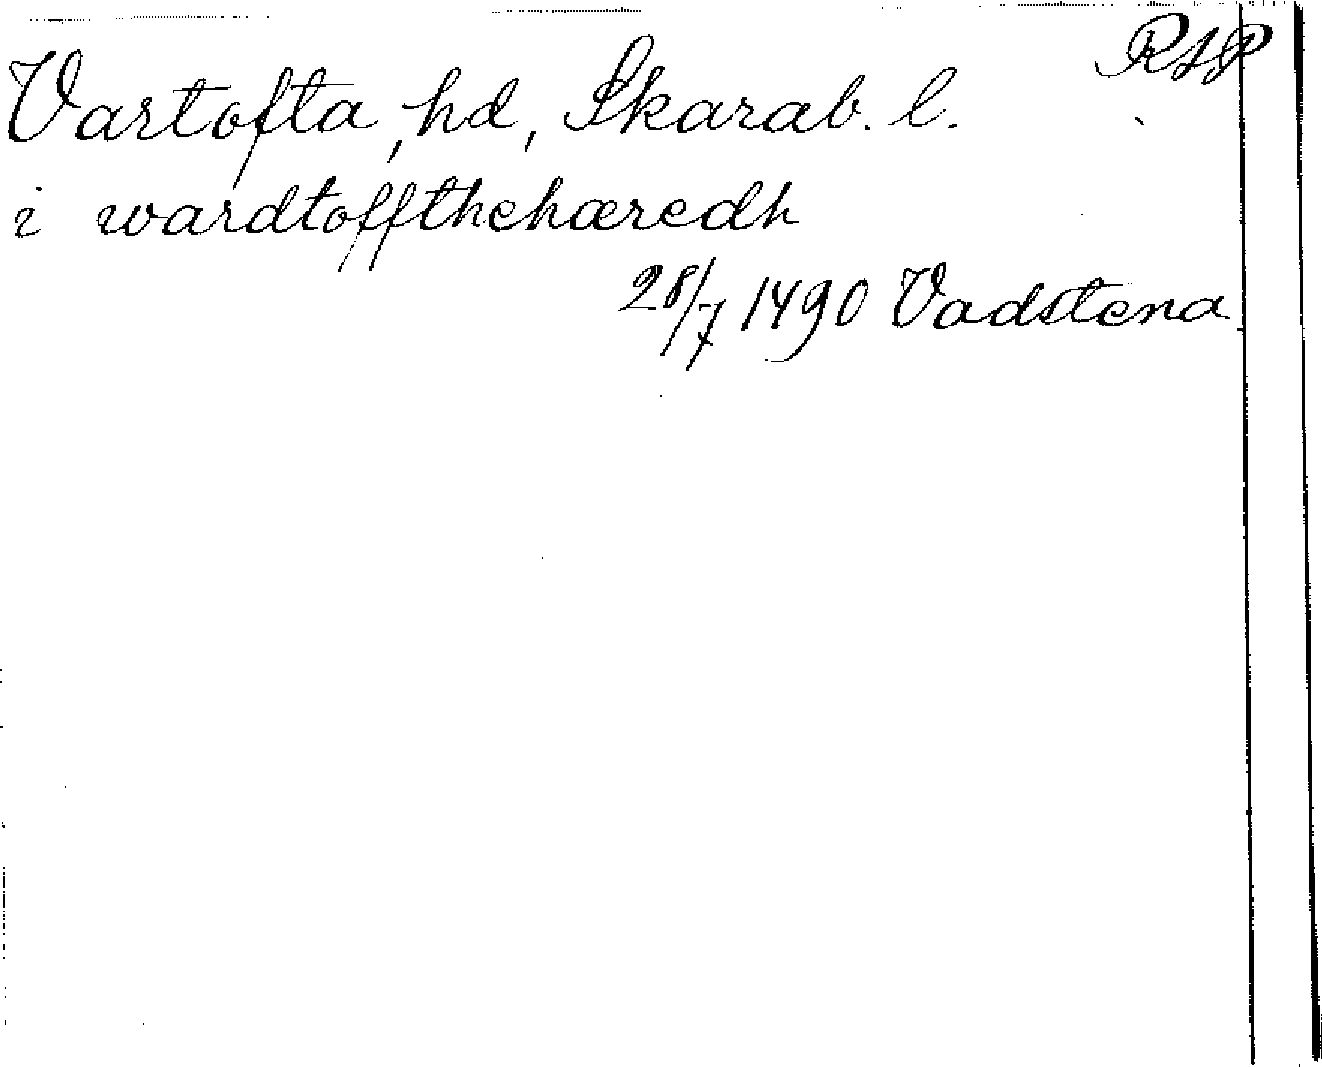 RAP
Vartofta, hd, Skarab. l.
i wardtoffthehæredh
28/7 1490 Vadstena